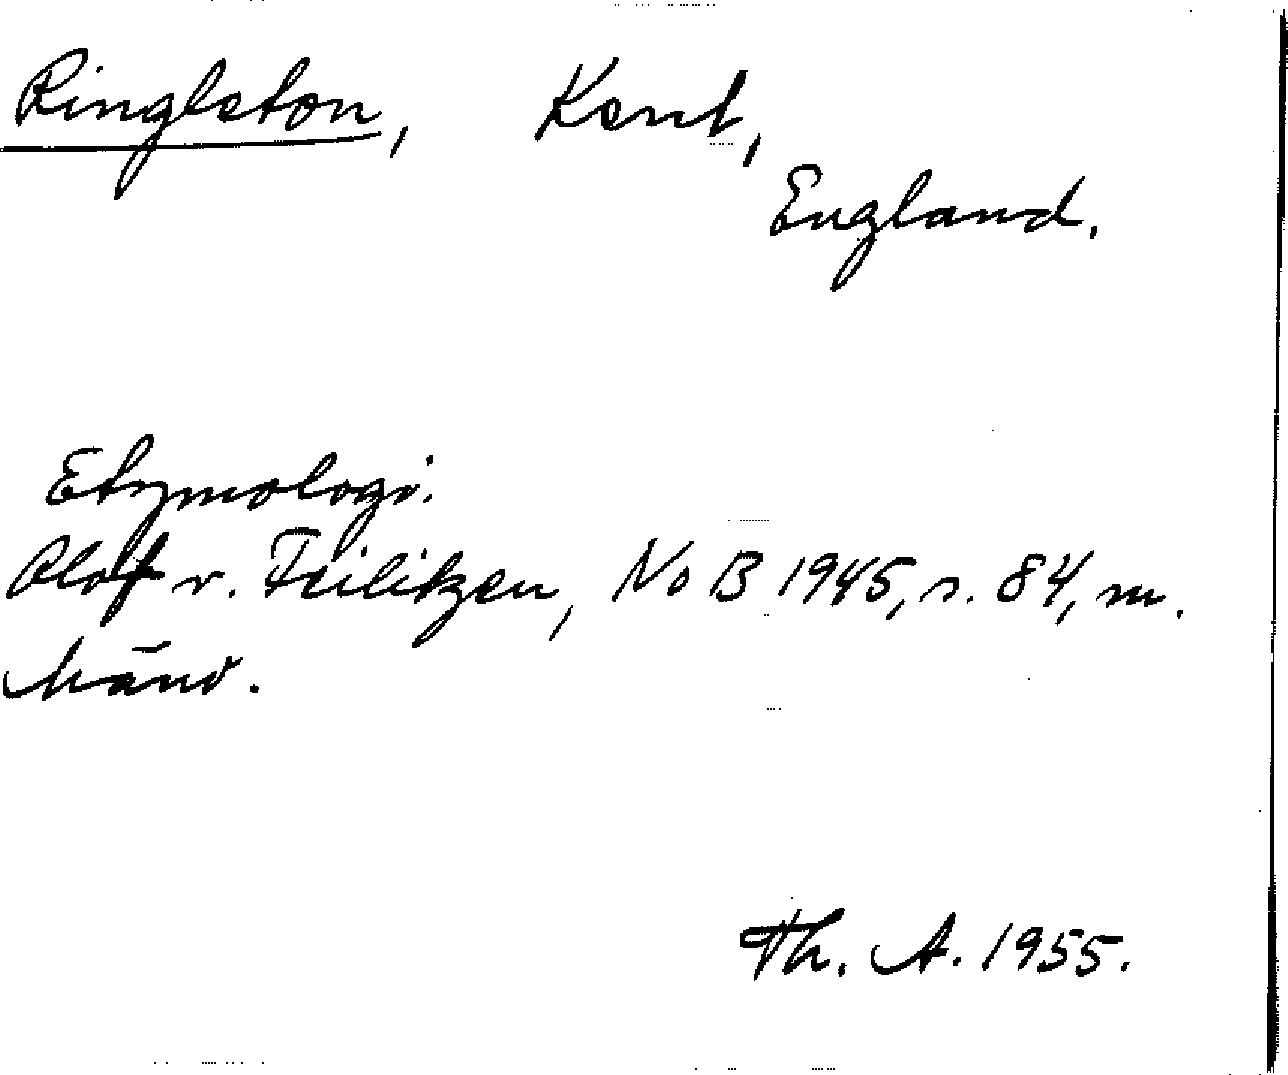 Ringleton, Kent,
England.
Etymologi.
Olof v. Feilitzen, NoB 1945, s. 84, m.
hänv.
Th. A. 1955.